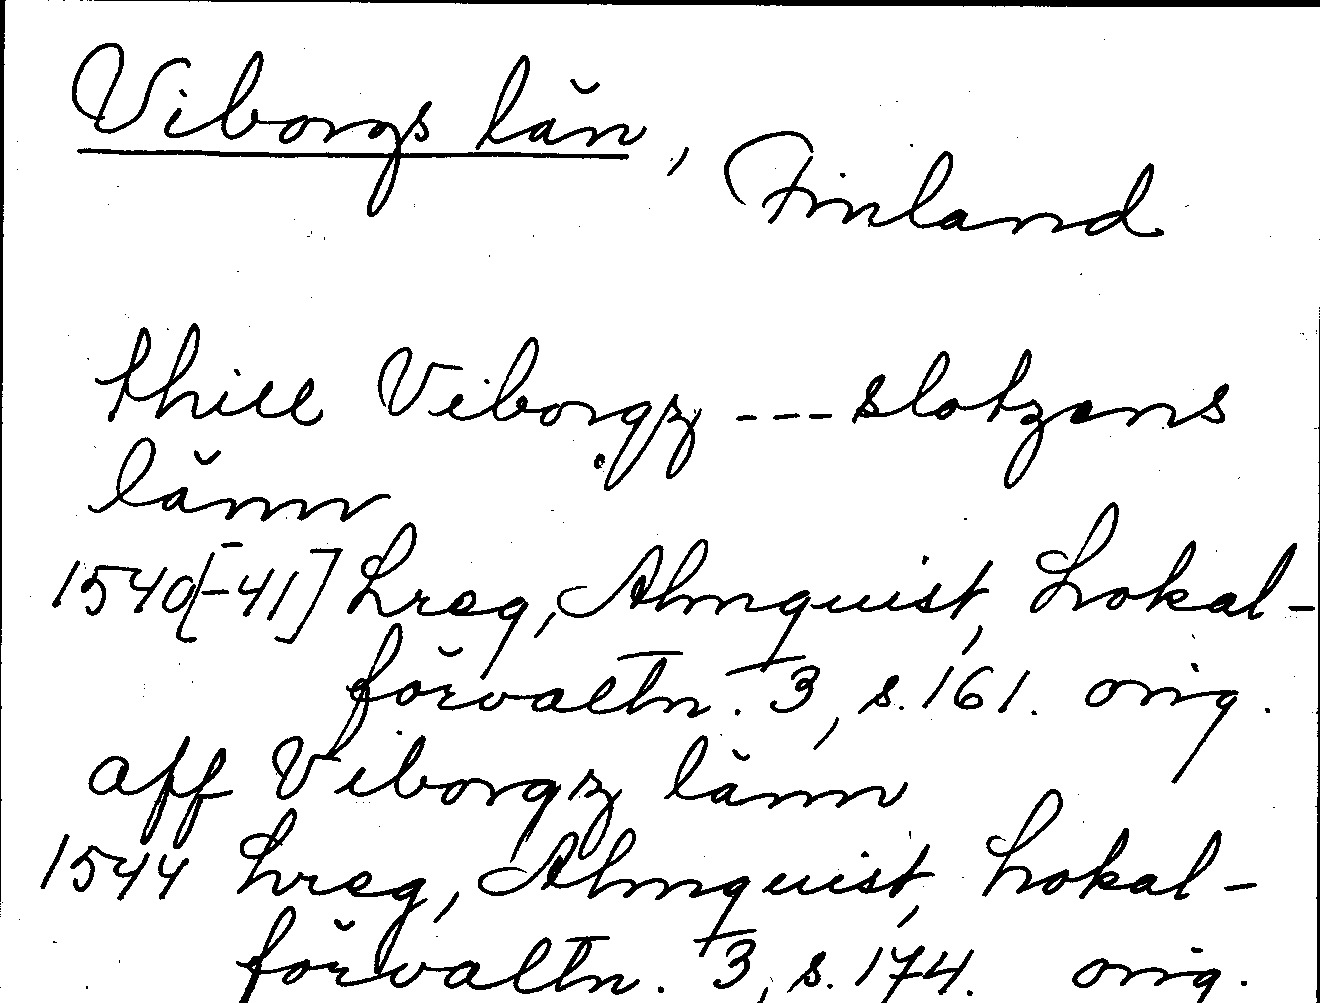 Viborgs län, Finland
thill Viborgz --- slotzens
länn
1540[-41] Lreg, Almquist, Lokal-
förvaltn. 3, s. 161. orig.
aff Viborgz länn
1544 Lreg, Almquist, Lokal-
förvaltn. 3, s. 174. orig.